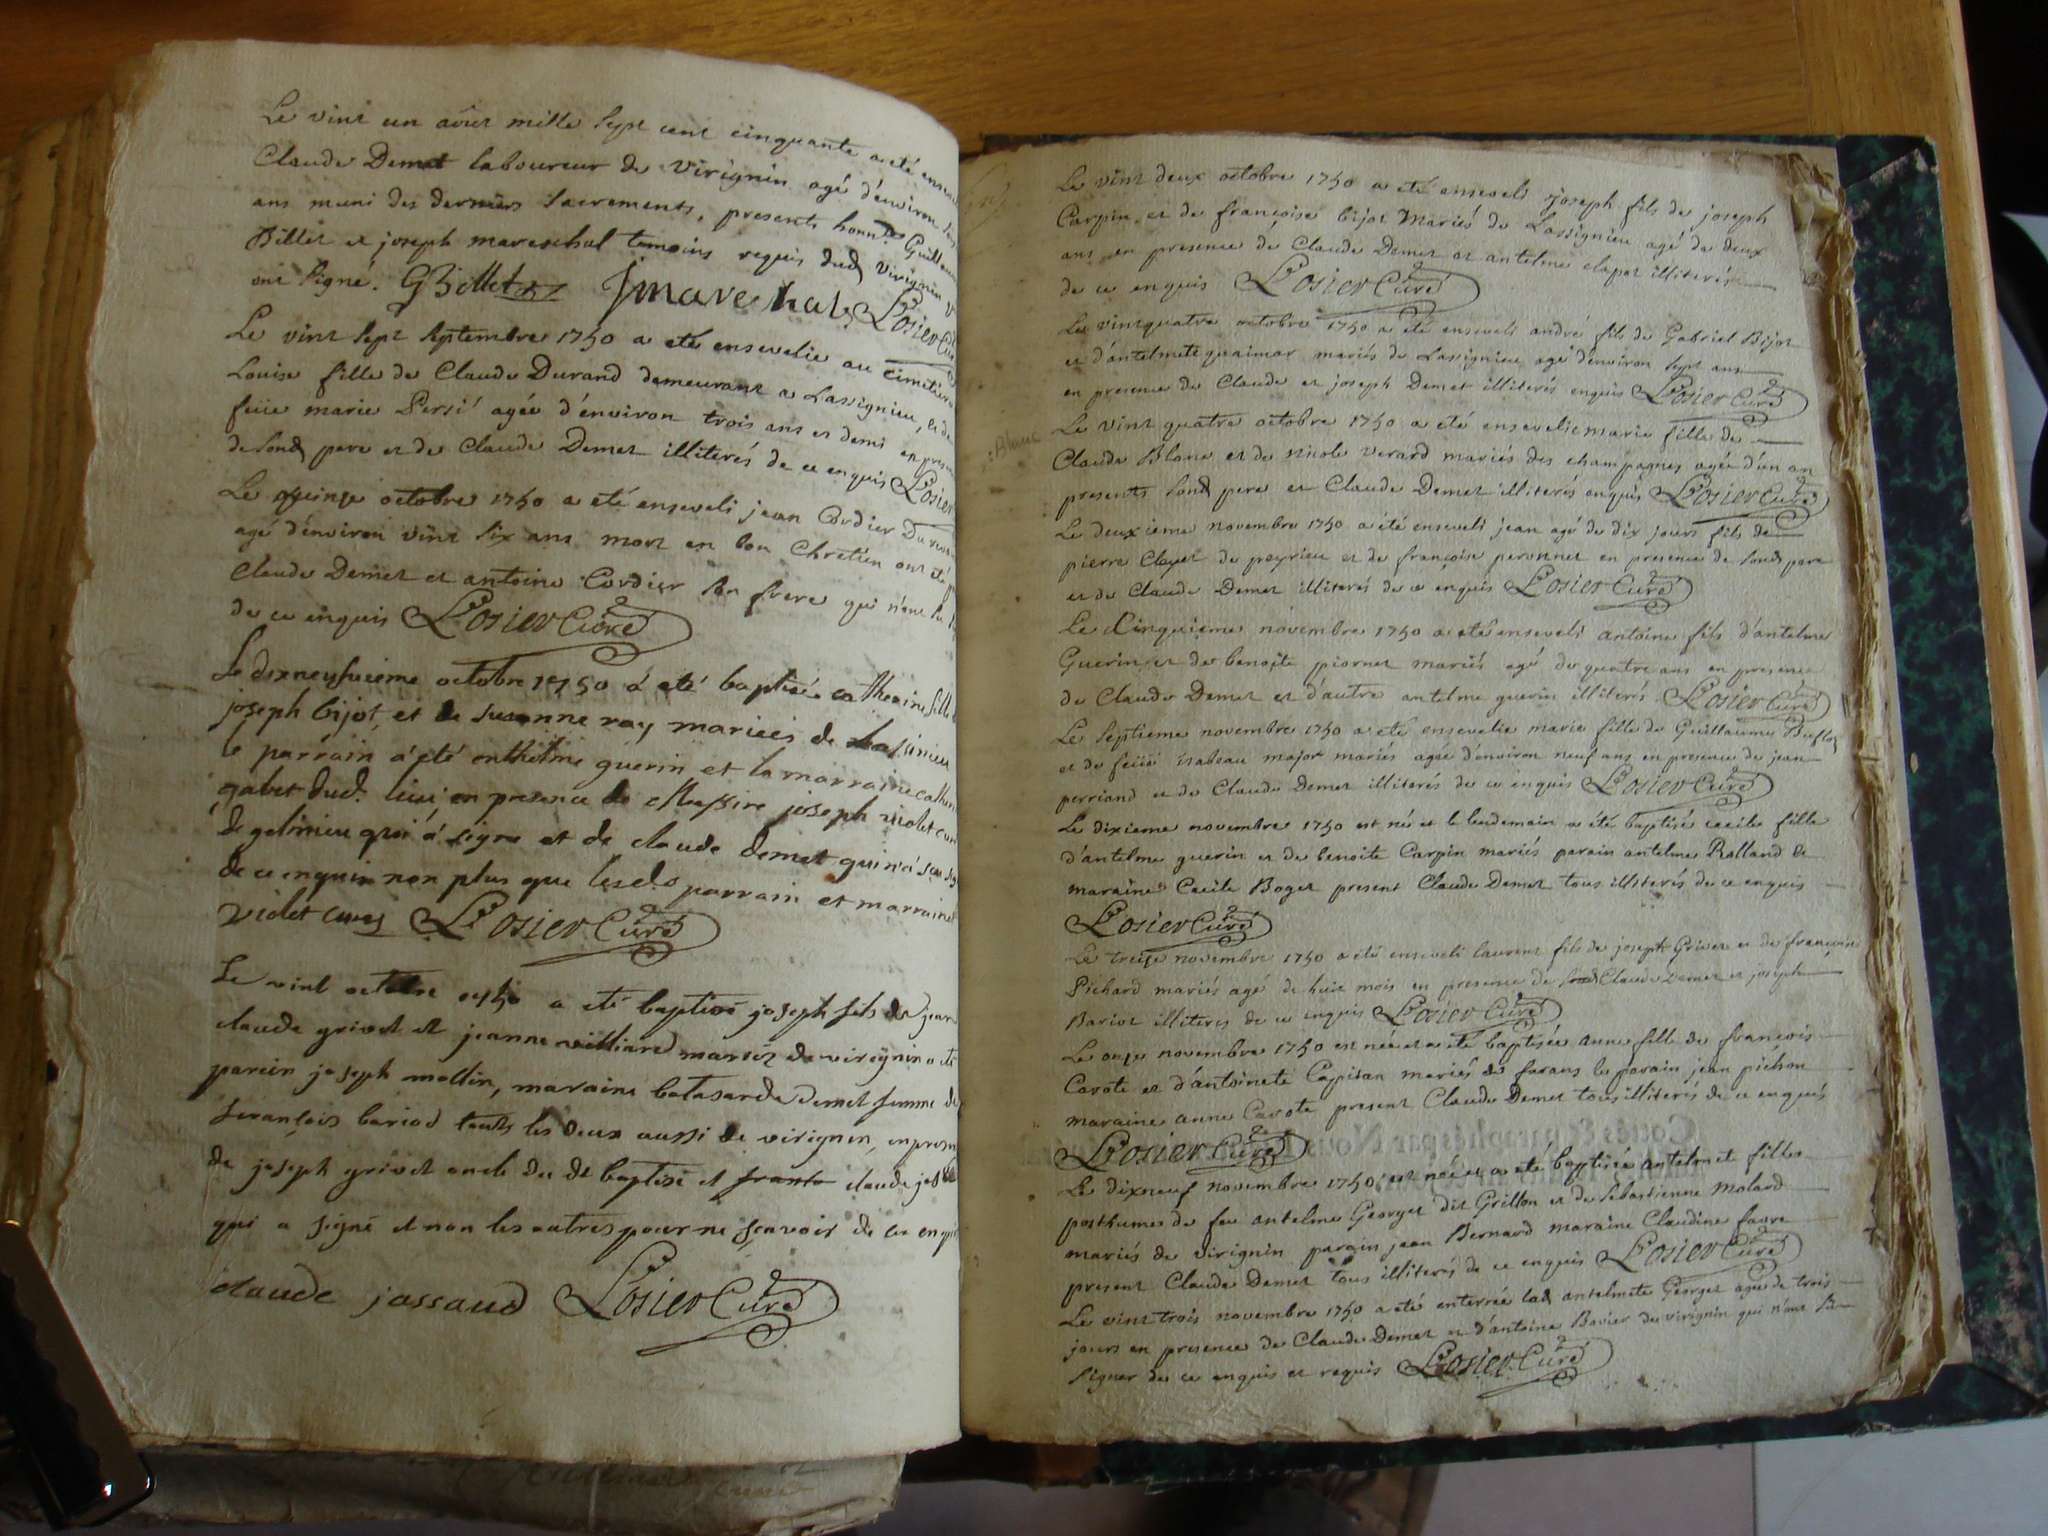 Le vint un aout mille sept cent cinquante a eté
Claude Demet laboureur de virignin agé d'environ
ans muni des derniers sacrements, presents honn. Guillaume
Billet et joseph mareschal temoins requis dud virignin
ont signé. GBillet Jmarechal Losier Curé
Le vint sept septembre 1750 a eté ensevelie au cimetiere
Louise fille de Claude Durand demeurant a Lassignieu, et de
feüe marie Persi agée d'environ trois ans et demi en
de sond pere et de Claude Demet illiterés de ce enquis Losier
Le quinze octobre 1750 a eté enseveli jean Cordier
agé d'environ vint six ans mort en bon Chretien ont eté
Claude Demet et antoine Cordier son frere qui n'ont su
de ce enquis Losier Curé
Le dixneufvieme octobre 1750 á eté baptisée catherine fille
joseph bijot et de susanne ray mariees de
le parrain á été anthelme guerin et la marraine
gabet dud. lieu en presence de Messire joseph violet curé
de gelinieu qui á signe et de claude demet qui n'á
de ce enquis non plus que lesds parrain et marraine
violet curé Losier Curé
Le vint octobre 1750 a eté baptisé joseph fils de jean
claude grivet et jeanne villiard mariés de virignin a eté
parein joseph mollin, maraine batasarde demet femme de
francois bariod touts les deux aussi de virignin, en
de joseph grivet oncle du dt baptisé et claude
qui a signé et non les autres pour ne sçavoir de ce
claude jassaud Losier Curé
Le vint deux octobre 1750 a eté enseveli joseph fils de joseph
Carpin et de françoise bijot Mariés de Lassignieu agé de deux
ans en presence de Claude Demet et antelme clapet illiterés
de ce enquis Losier Curé
Le vintquatre octobre 1750 a eté enseveli andré fils de Gabriel Bijot
et d'antelmete mariés de Lassignieu agé d'environ sept ans
en presence de Claude et joseph Demet illiterés enquis Losier Curé
Blanc
Le vint quatre octobre 1750 a eté ensevelie marie fille de
Claude Blanc et de nicole verard mariés des champagnes agée d'un an
presents sond pere et Claude Demet illiterés enquis Losier Curé
Le deuxieme novembre 1750 a eté enseveli jean agé de dix jours fils de
pierre Clayet de peyrieu et de françoise peronnet en presence de sond pere
et de Claude Demet illiterés de ce enquis Losier Curé
Le Cinquieme novembre 1750 a eté enseveli antoine fils d'antelme
Guerin et de benoite piornet mariés agé de quatre ans en presence
de Claude Demet et d'autre antelme guerin illiterés Losier Curé
Le septieme novembre 1750 a eté ensevelie marie fille de Guillaume
et de feüe isabeau major mariés agée d'environ neuf ans en presence de jean
perriand et de Claude Demet illiterés de ce enquis Losier Curé
Le dixieme novembre 1750 est né et le lendemain a eté baptisé cecile fille
d'antelme guerin et de benoite Carpin mariés parain antelme Rolland et
maraine Cecile Boget present Claude Demet tous illiterés de ce enquis
Losier Curé
Le treize novembre 1750 a eté enseveli laurent fils de joseph Grivet et de françoise
Pichard mariés agé de huit mois en presence de Claude Demet et joseph
Bariot illiteres de ce enquis Losier Curé
Le onze novembre 1750 est née et a eté baptisée anne fille de françois
Carote et d'antoinete Capitan mariés de farans le parain jean pichon
maraine anne Carote present Claude Demet tous illiterés de ce enquis
Losier Curé
Le dixneuf novembre 1750 est née et a eté baptisée antelmete fille
posthume de feu antelme Georget dit Grillon et de sebastienne molard
mariés de virignin parain jean Bernard maraine Claudine favre
present Claude Demet tous illiterés de ce enquis Losier Curé
Le vint trois novembre 1750 a eté enterrée lad antelmete Georget agée de trois
jours en presence de Claude Demet et d'antoine Bavier de virignin qui n'ont su
signer de ce enquis et requis Losier Curé